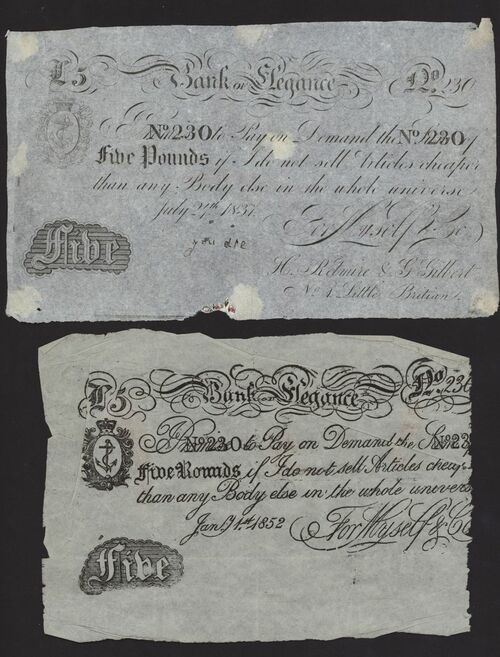 £5 Bank of Elegance No. 230
I Promise to Pay on Demand the Sum of
No 230 No 230
Five Pounds if I do not sell Articles cheaper
than any Body else in the whole universe
July 27th 1837.
For Myself & Co
you are
Five
H. & G Gilbert
No 1 Little
£5 Bank of Elegance No 230
I No 230 to Pay on Demand the No 23
Five Rounds if I do not sell Articles cheap
than any Body else in the whole univers
Jany 1st 1852 For Myself & Co
Five